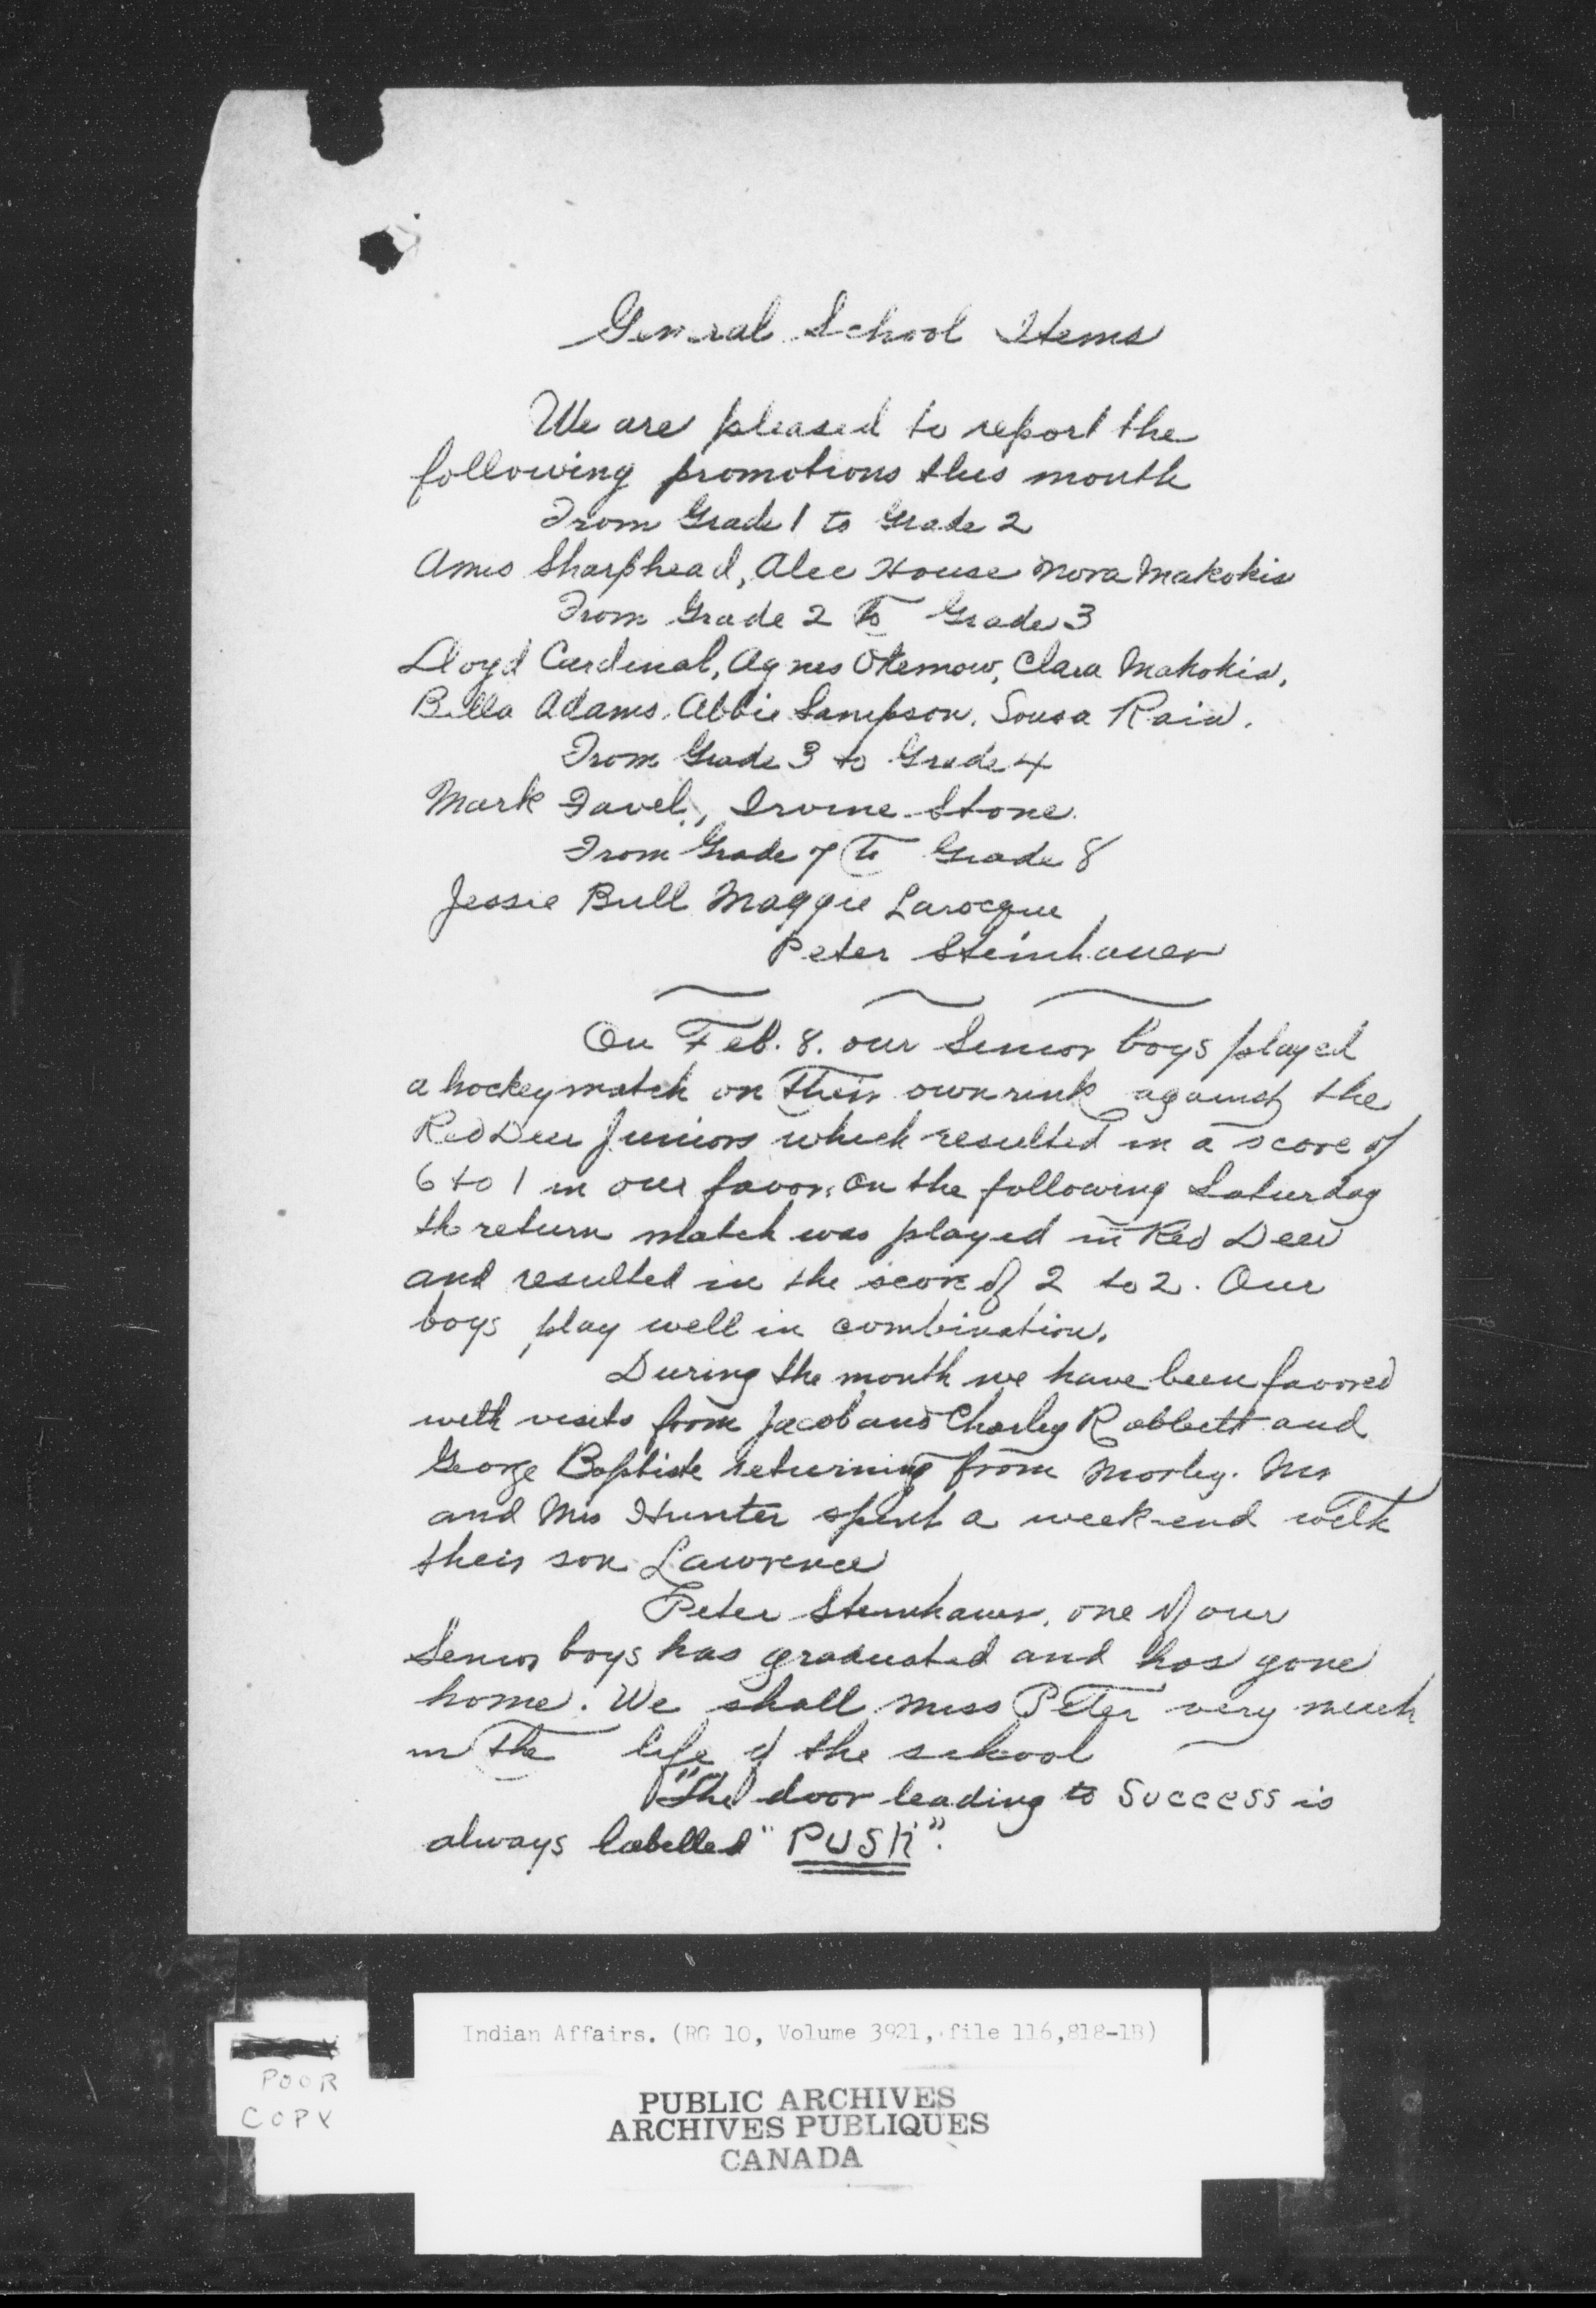 General School Items
We are pleased to report the
following promotions this month
From Grade 1 to Grade 2
Amos Sharphead, Alec House Nora Makokis
From Grade 2 to Grade 3
Lloyd Cardinal, Agnes Okemow, Clara Makokis,
Bella Adams, Abbie Sampson, Sousa Rain.
From Grade 3 to Grade 4
Mark Favel, Irvine Stone.
From Grade 7 to Grade 8
Jessie Bull Maggie Larocque,
Peter Steinhauer
On Feb. 8. our Senior boys played
a hockey match on their own rink against the
Red Deer Juniors which resulted in a score of
6 to 1 in our favor. On the following Saturday
the return match was played in Red Deer
and resulted in the score of 2 to 2. Our
boys play well in combination.
During the month we have been favored
with visits from Jacob and Charley Rabbitt and
George Baptiste returning from Morley. Mr
and Mrs Hunter spent a week-end with
their son Lawrence
Peter Steinhauer, one of our
Senior boys has graduated and has gone
home. We shall miss Peter very much
in the life of the school
"The door leading to Success is
always labelled "PUSH".
Indian Affairs. (RG 10, Volume 3921, file 116,818-1B)
POOR
COPY
PUBLIC ARCHIVES
ARCHIVES PUBLIQUES
CANADA